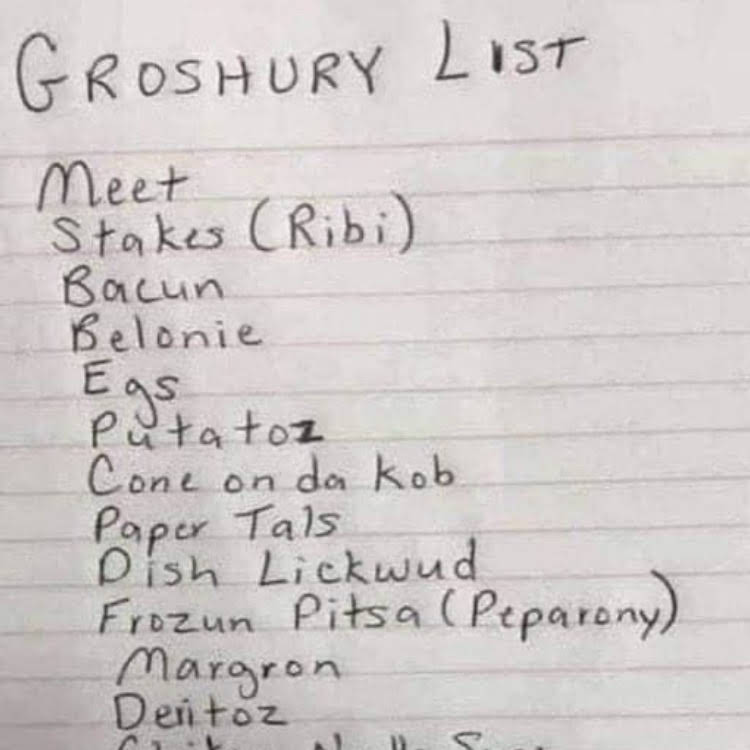 GROSHURY LIST
Meet
Stakes (Ribi)
Bacun
Belonie
Egs
Putatoz
Cone on da Kob
Paper Tals
Dish Lickwud
Frozun Pitsa (Peparony)
Margron
Deritoz